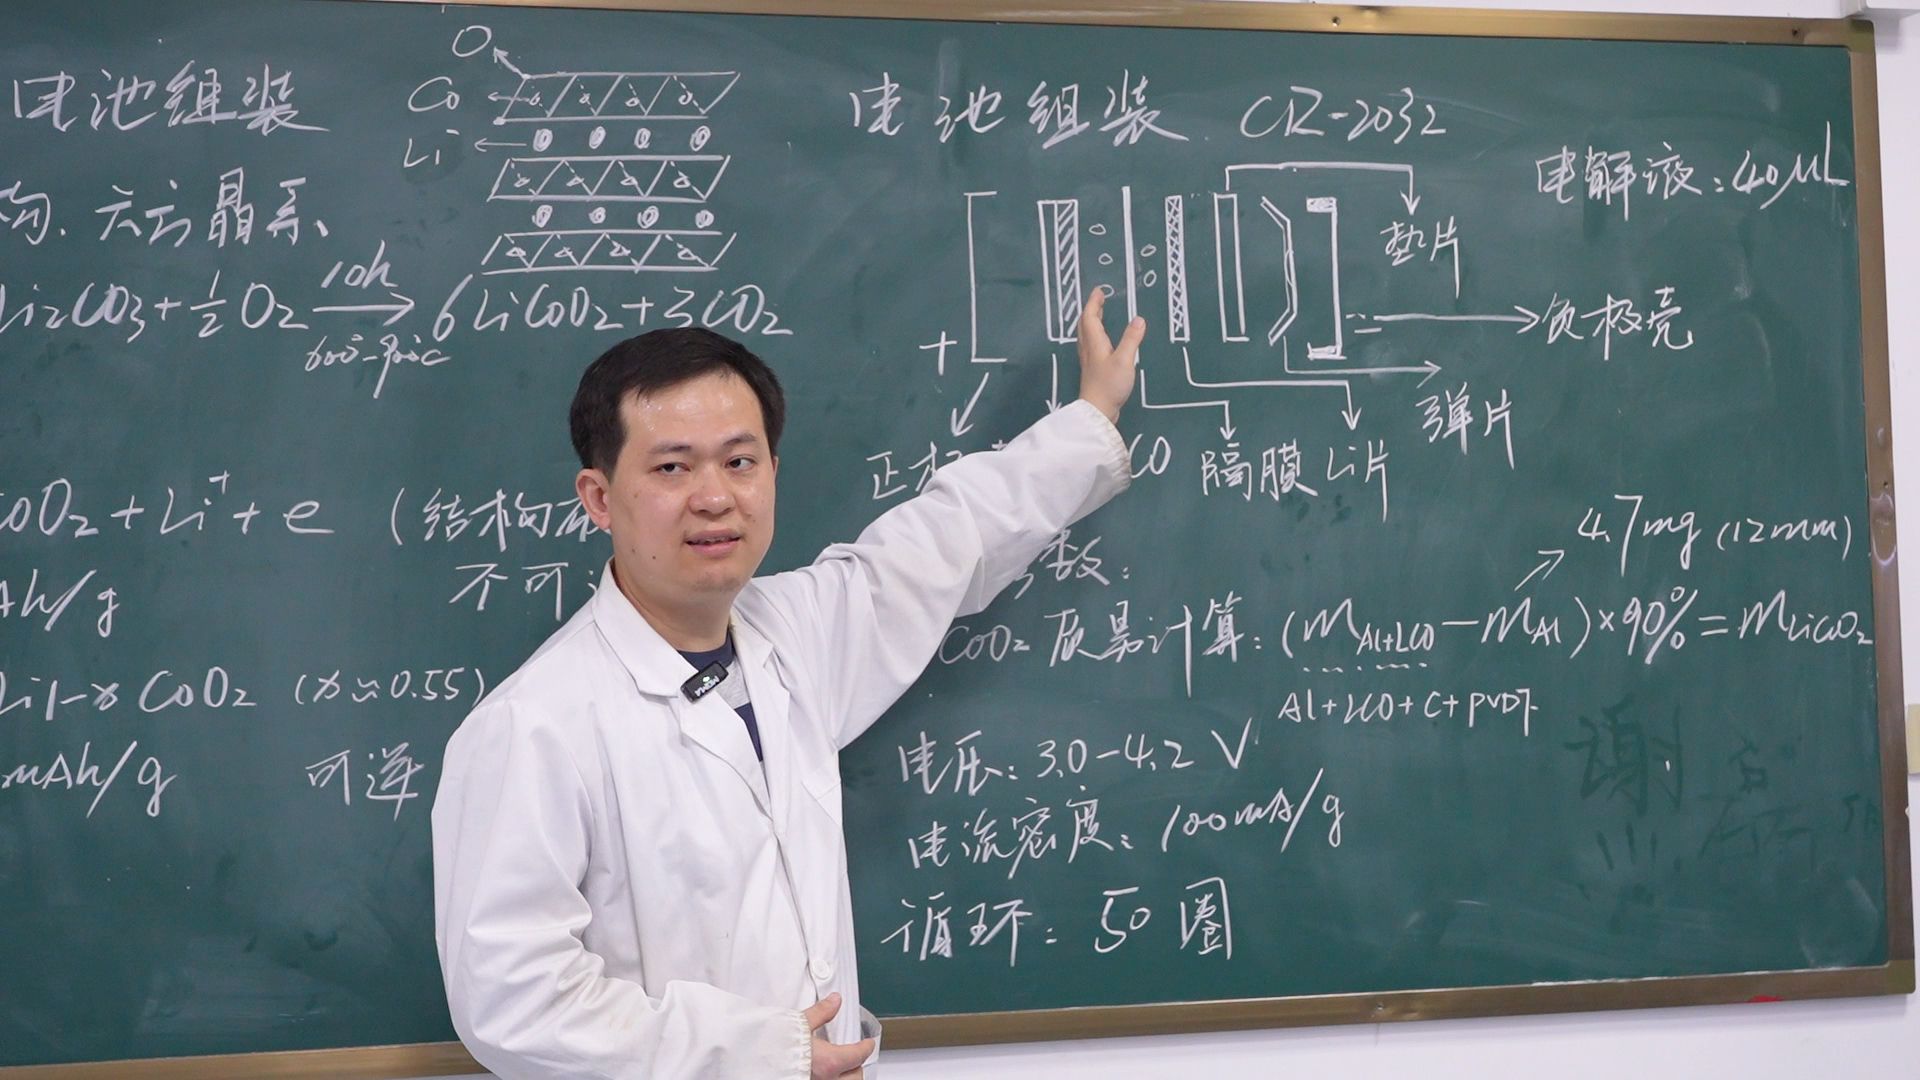 电池组装
O
Co
Li
构、六方晶系
Li2CO3+1/2O2 →(10h, 600°-900°C) 6LiCoO2+3CO2
CoO2+Li⁺+e (结构
Ah/g 不可
Li1-xCoO2 (x≈0.55)
mAh/g 可逆
电池组装 CR-2032
电解液:40μL
垫片
+
负极壳
弹片
正极
CO 隔膜 Li片
数:
4.7mg (12mm)
CoO2 质量计算:(mAl+LCO-mAl)×90%=mLiCoO2
Al+LCO+C+PVDF
电压:3.0-4.2V
电流密度:100mA/g
循环:50圈
谢